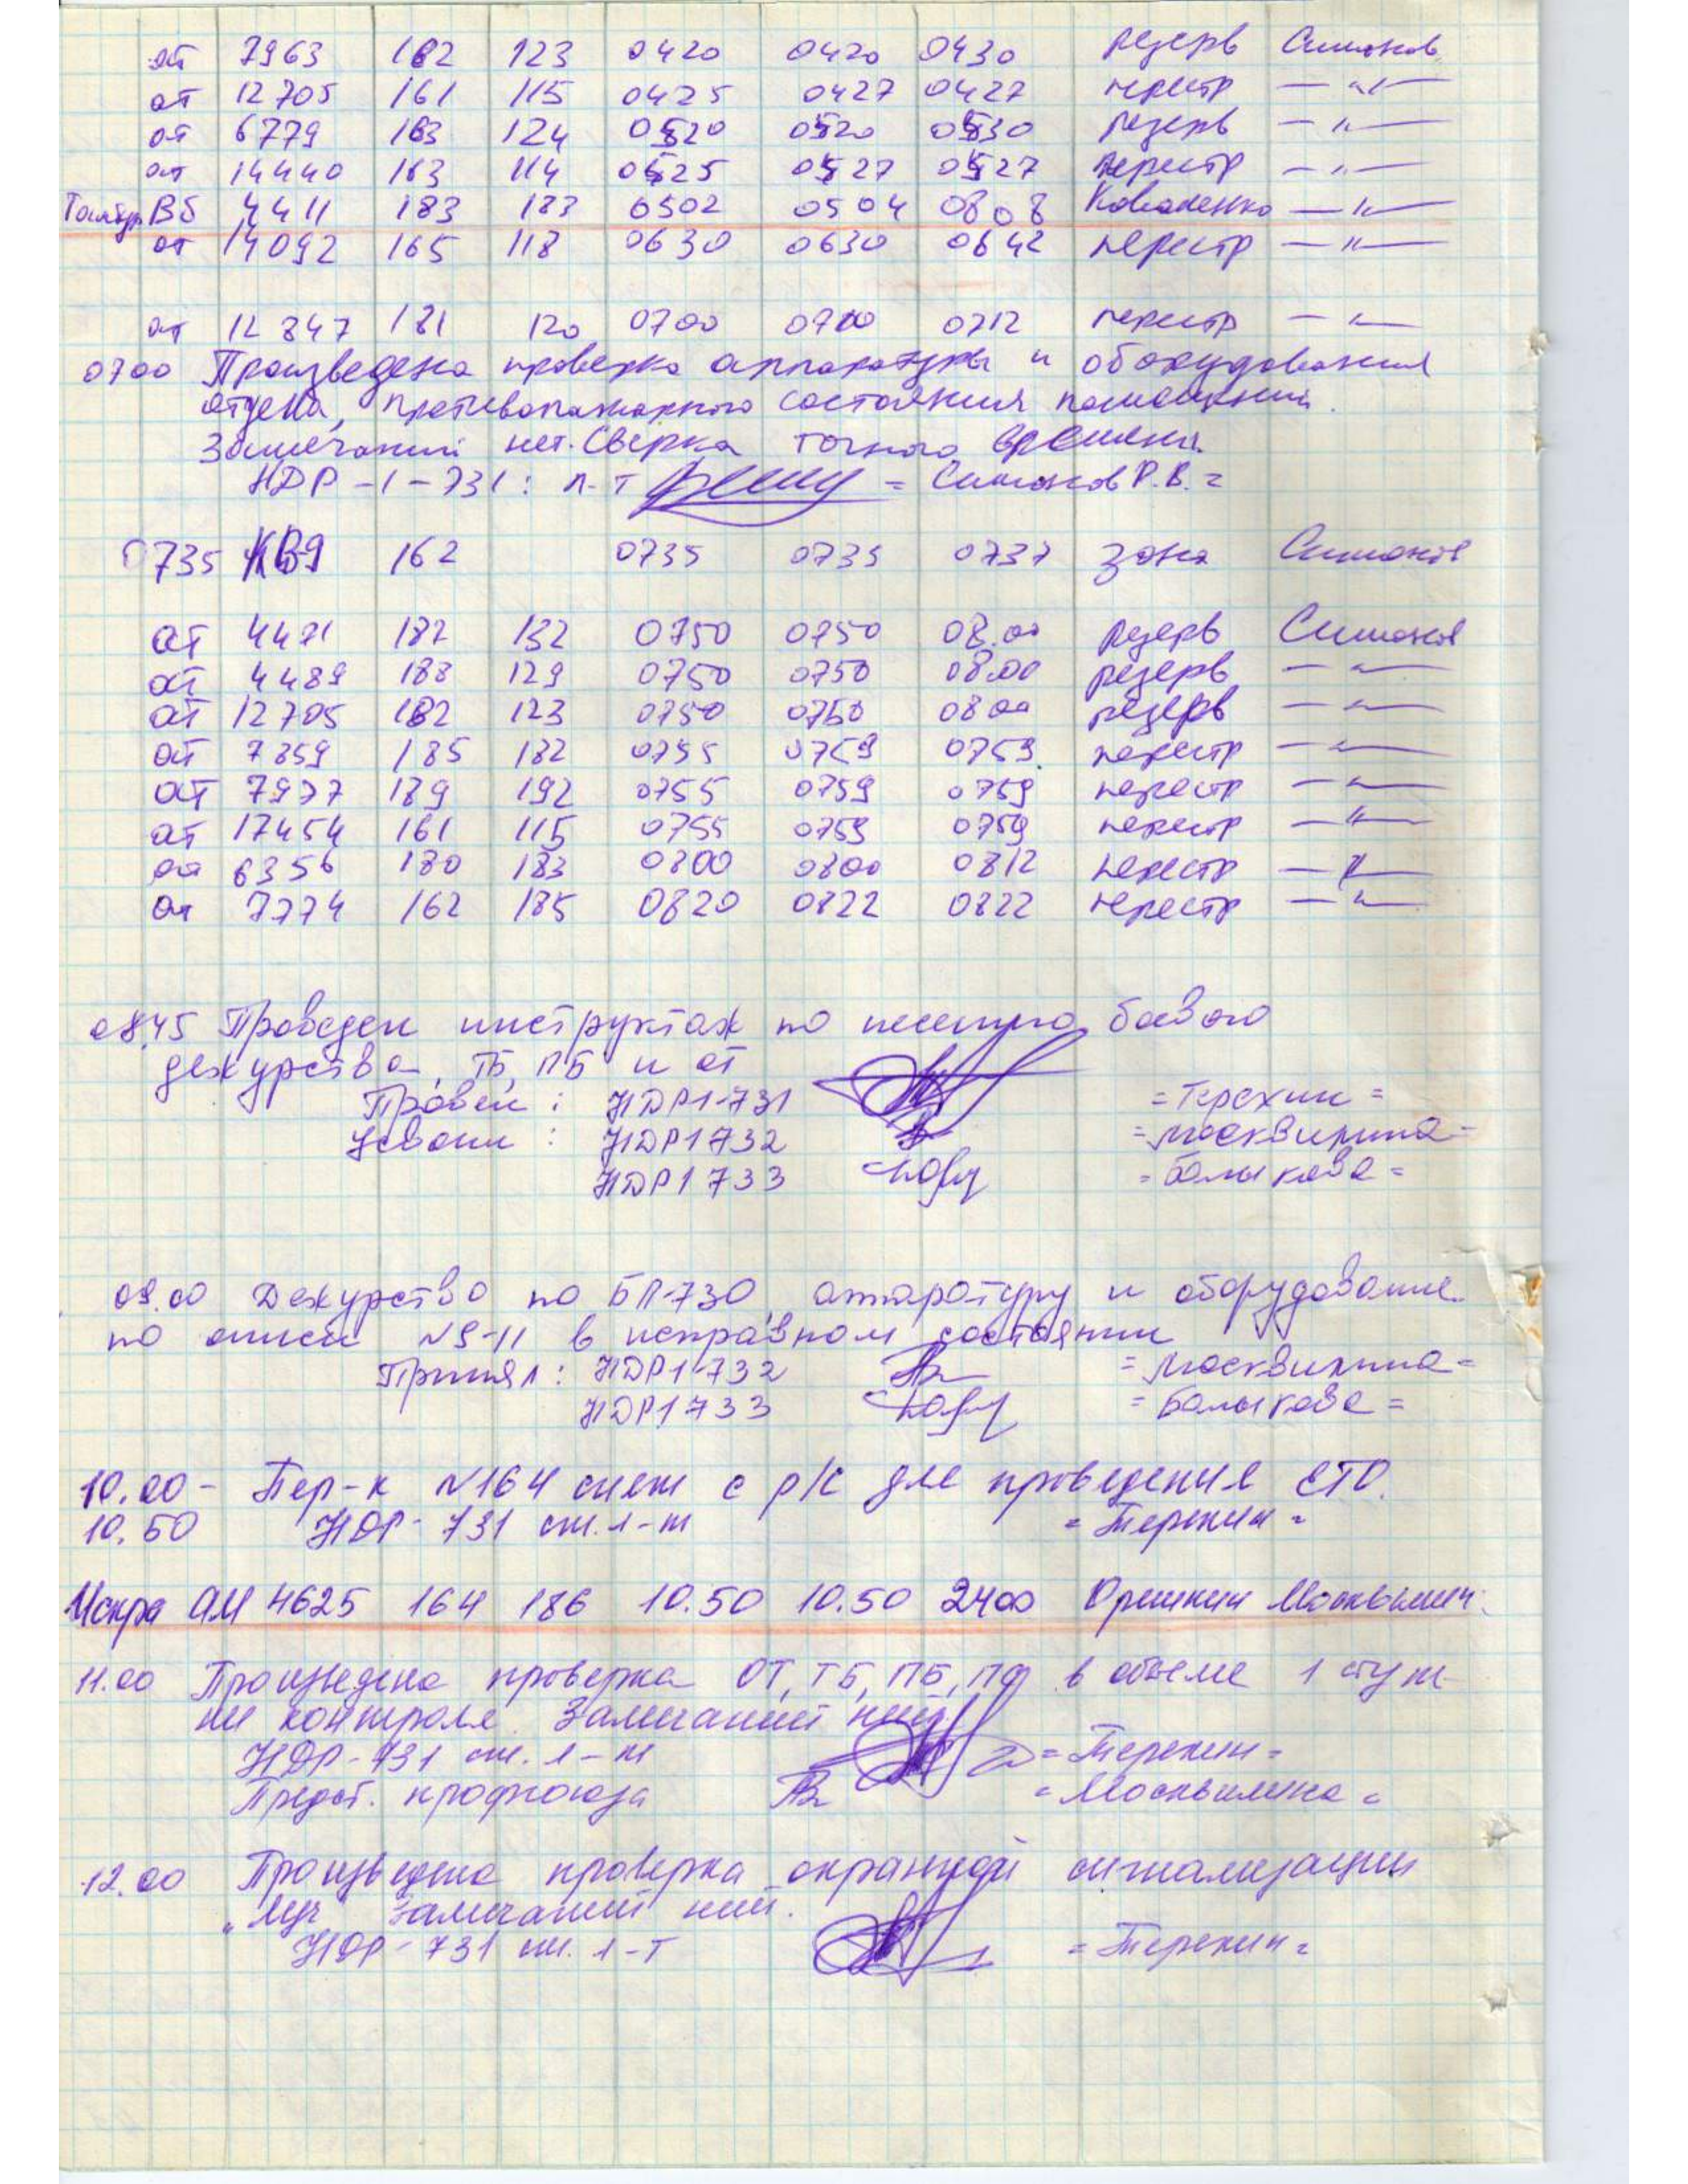 от 7963 182 123 0420 0420 0430 резерв Симонов
от 12705 161 115 0425 0427 0427 перестр — " —
от 6779 163 124 0520 0520 0530 резерв — " —
от 14440 163 114 0525 0527 0527 перестр — " —
ВБ 4411 183 183 0502 0504 0808 Коваленко — " —
от 14092 165 118 0630 0630 0642 перестр — " —
от 12847 181 120 0700 0700 0712 перестр — " —
0700 Произведена проверка аппаратуры и оборудования
отдела, противопожарного состояния помещения.
Замечаний нет. Сверка точного времени.
НДР-1-731: л-т = Симонов Р.В. =
0735 КВ9 162 0735 0735 0737 зона Симонов
от 4471 182 132 0750 0750 08.00 резерв Симонов
от 4489 188 129 0750 0750 08.00 резерв — " —
от 12705 182 123 0750 0750 0800 резерв — " —
от 7859 185 182 0755 0759 0759 перестр — " —
от 7977 189 192 0755 0759 0759 перестр — " —
от 17454 161 115 0755 0759 0759 перестр — " —
от 6356 180 183 0800 0800 0812 перестр — " —
от 7774 162 185 0820 0822 0822 перестр — " —
08.45 Проведен инструктаж по несению боевого
дежурства, ТБ, ПБ и от
Провел: НДР1-731 = Терехин =
Усвоили: НДР1 732 = Москвитина =
НДР1 733 = Балыкова =
09.00 Дежурство по БП-730, аппаратуру и оборудование
по описи №9-11 в исправном состоянии
Принял: НДР1-732 = Москвитина =
НДР1 733 = Балыкова =
10.00 - Пер-к №164 снят с р/с для проведения ЕТО.
10.50 НДР-731 ст. л-т = Терехин =
Искра АМ 4625 164 186 10.50 10.50 2400 Орешкин Москвитин.
11.00 Произведена проверка ОТ, ТБ, ПБ, в объеме 1 ступе-
ни контроля. Замечаний нет.
НДР-731 ст. л-т = Терехин =
Предст. профсоюза = Москвитина =
12.00 Произведена проверка охранной сигнализации
„Луч" Замечаний нет.
НДР-731 ст. л-т = Терехин =